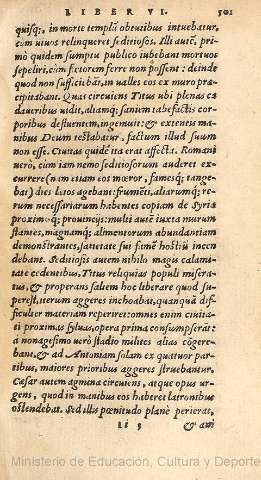 LIBER VI. 501
quisq;, in morte templũ obtutibus intuebatur,
cum uiuos relinqueret seditiosos. Illi autẽ, pri-
mò quidem sumptu publico iubebant mortuos
sepeliri, cùm fœtorem ferre non possent: deinde
quod non sufficiebãt, in ualles eos ex muro præ-
cipitabant. Quas circuiens Titus ubi plenas ca
daueribus uidit, aliamq́; saniem tabefactis cor-
poribus defluentem, ingemuit: & extensis ma-
nibus Deum testabatur, factum illud suum
non esse. Ciuitas quidẽ ita erat affecta. Romani
uerò, cùm iam nemo seditiosorum auderet ex-
currere (nam etiam eos mœror, famesq́; tange-
bat) dies lætos agebant: frumẽti, aliarumq́; re-
rum necessariarum habentes copiam de Syria
proximisq́; prouincijs: multi autẽ iuxta murum
stantes, magnamq́; alimentorum abundantiam
demonstrantes, satietate sui famẽ hostiũ incen
debant. Seditiosis autem nihilo magis calami-
tate cedentibus, Titus reliquias populi misera-
tus, & properans saltem hoc liberare quod su-
peresset, iterum aggeres inchoabat, quanquã dif-
ficulter materiam reperiret: omnes enim ciuita-
ti proximas syluas, opera prima consumpserãt:
à nonagesimo uerò stadio milites alias cogere-
bant. & ad Antoniam solam ex quatuor par-
tibus, maiores prioribus aggeres struebantur.
Cæsar autem agmina circuiens, atque opus ur-
gens, quod in manibus eos haberet latronibus
ostendebat. Sed illis pœnitudo planè perierat,
Ii 3 & ani
Ministerio de Educación, Cultura y Deporte